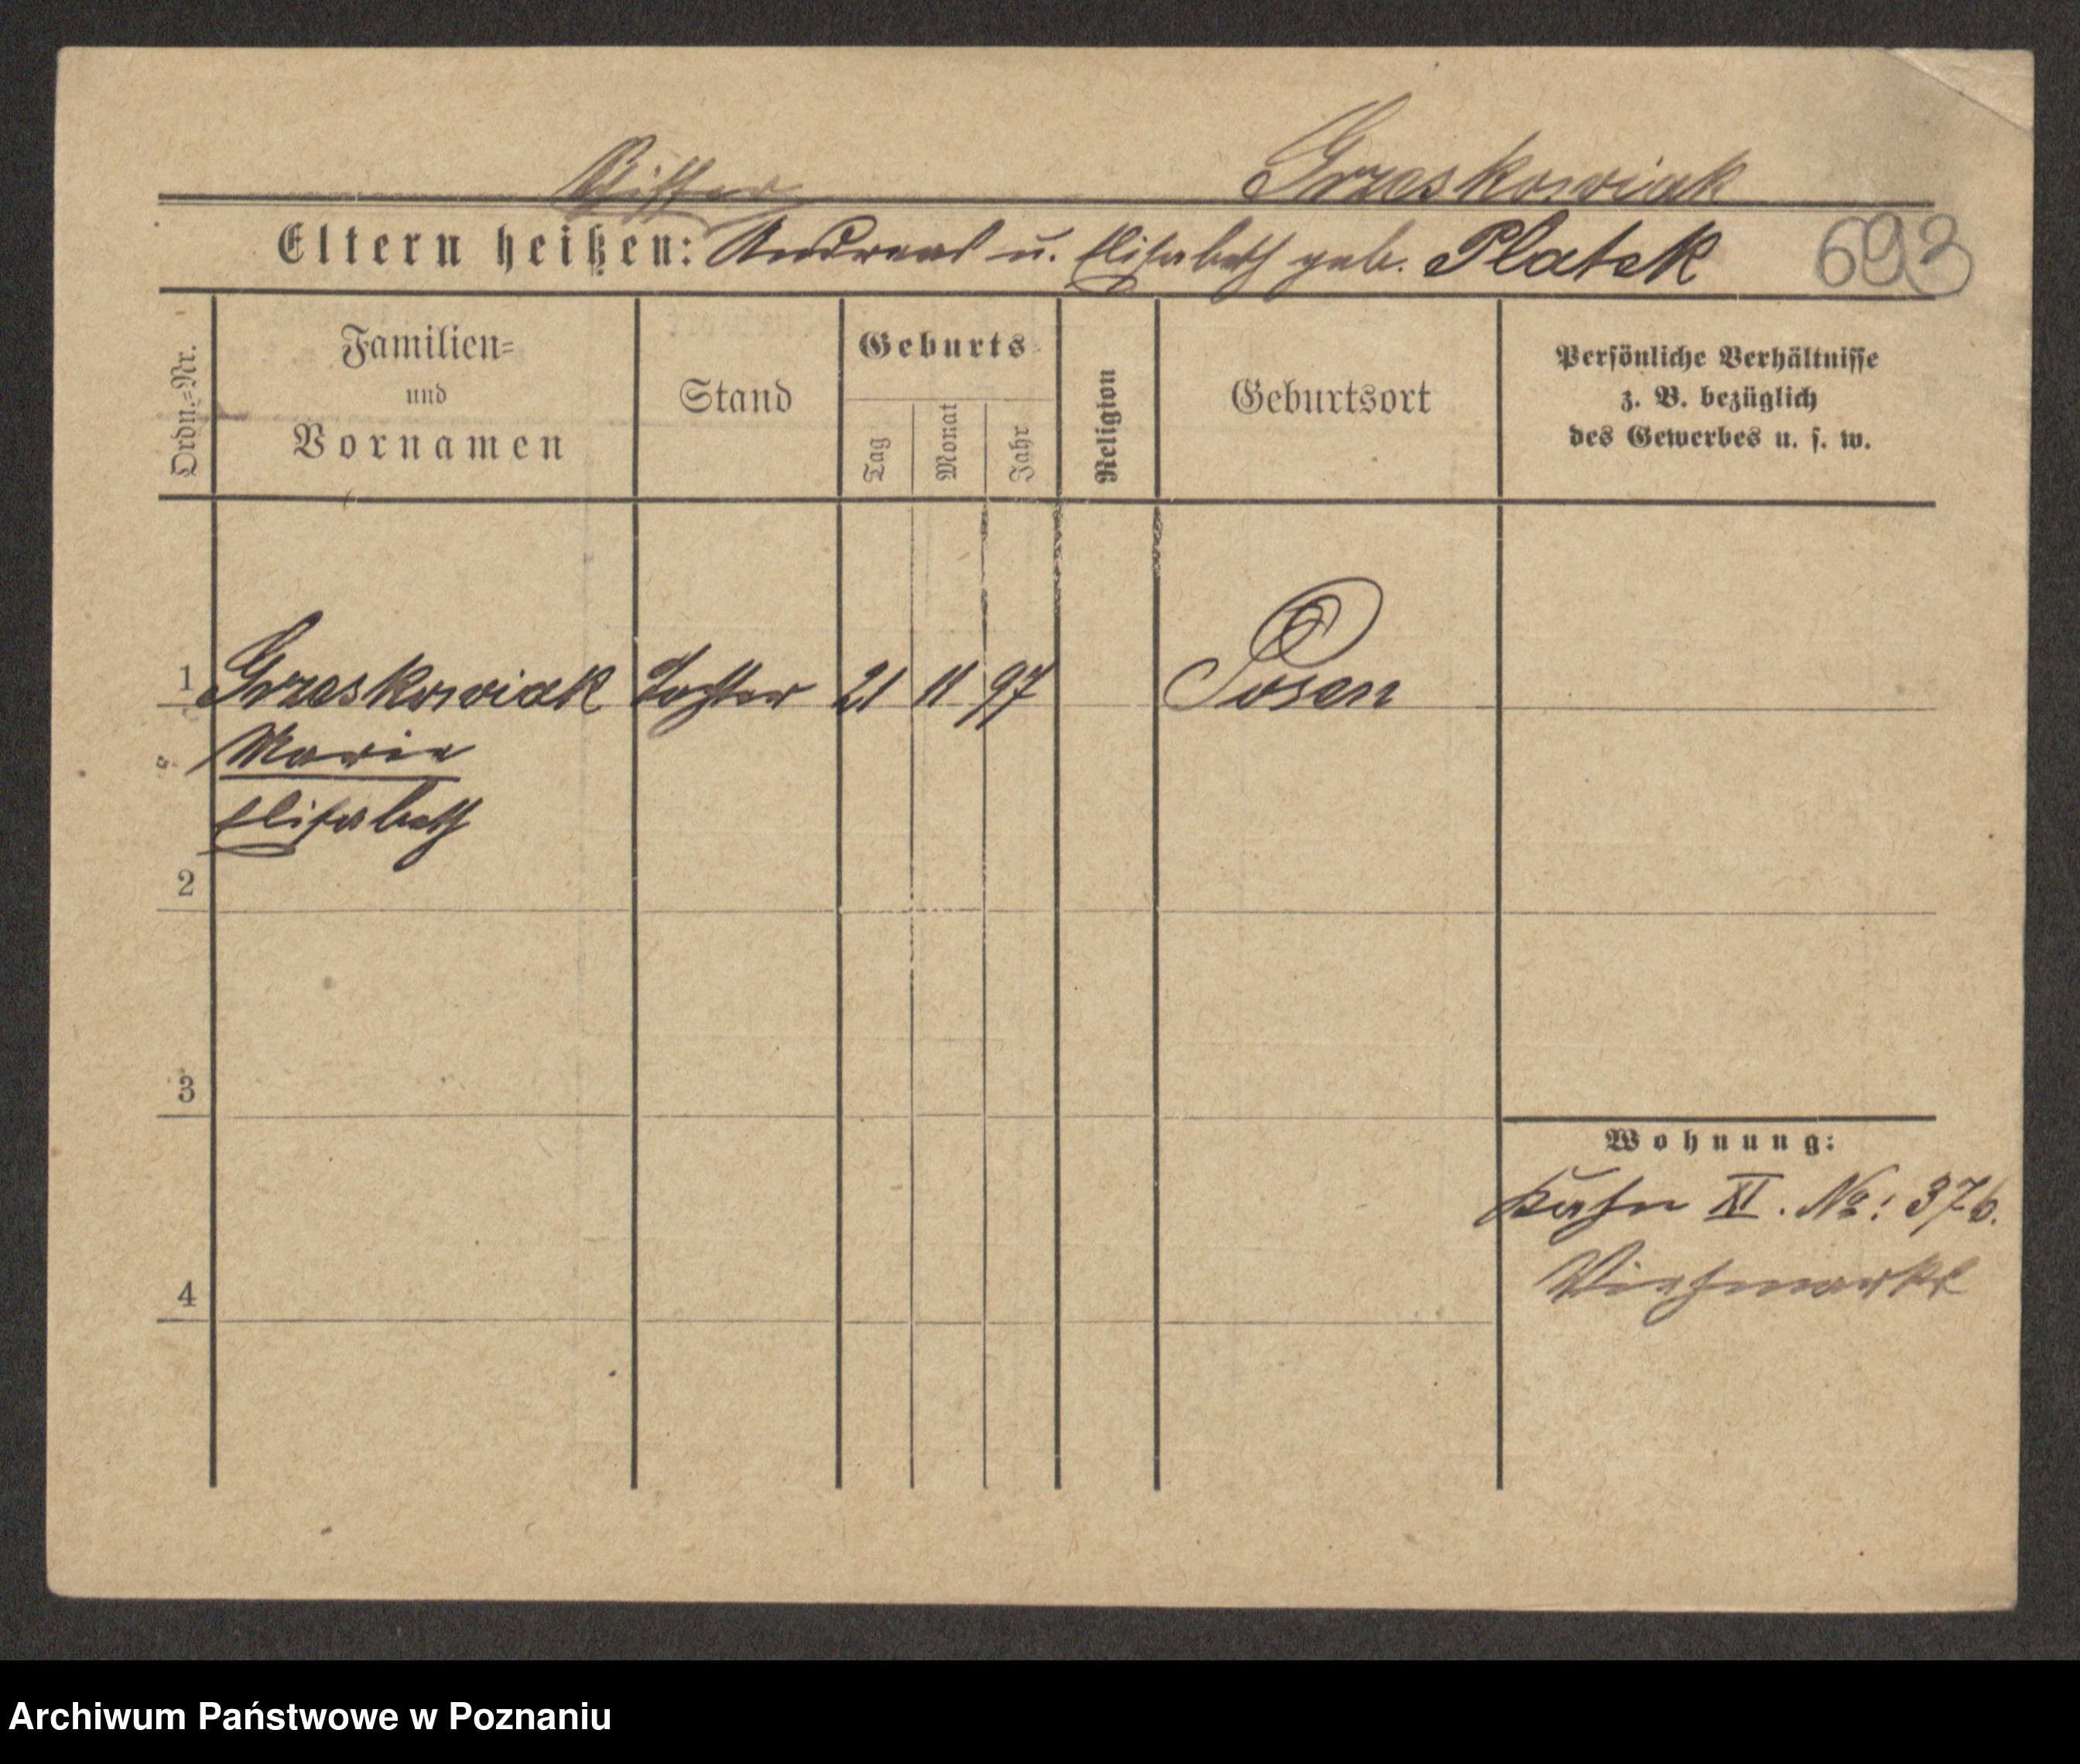 Schiffer Grzeskowiak
Eltern heißen: Andreas u. Elisabeth geb. Platek 693
Ordn.=Nr.
Familien=
und
Vornamen
Stand
Geburts
Tag
Monat
Jahr
Religion
Geburtsort
Persönliche Verhältnisse
z. B. bezüglich
des Gewerbes u. s. w.
1 Grzeskowiak Tochter 21 11 97 Posen
Maria
Elisabeth
2
3
Wohnung:
Kahn XI. No: 376.
Viehmarkt
4
Archiwum Państwowe w Poznaniu